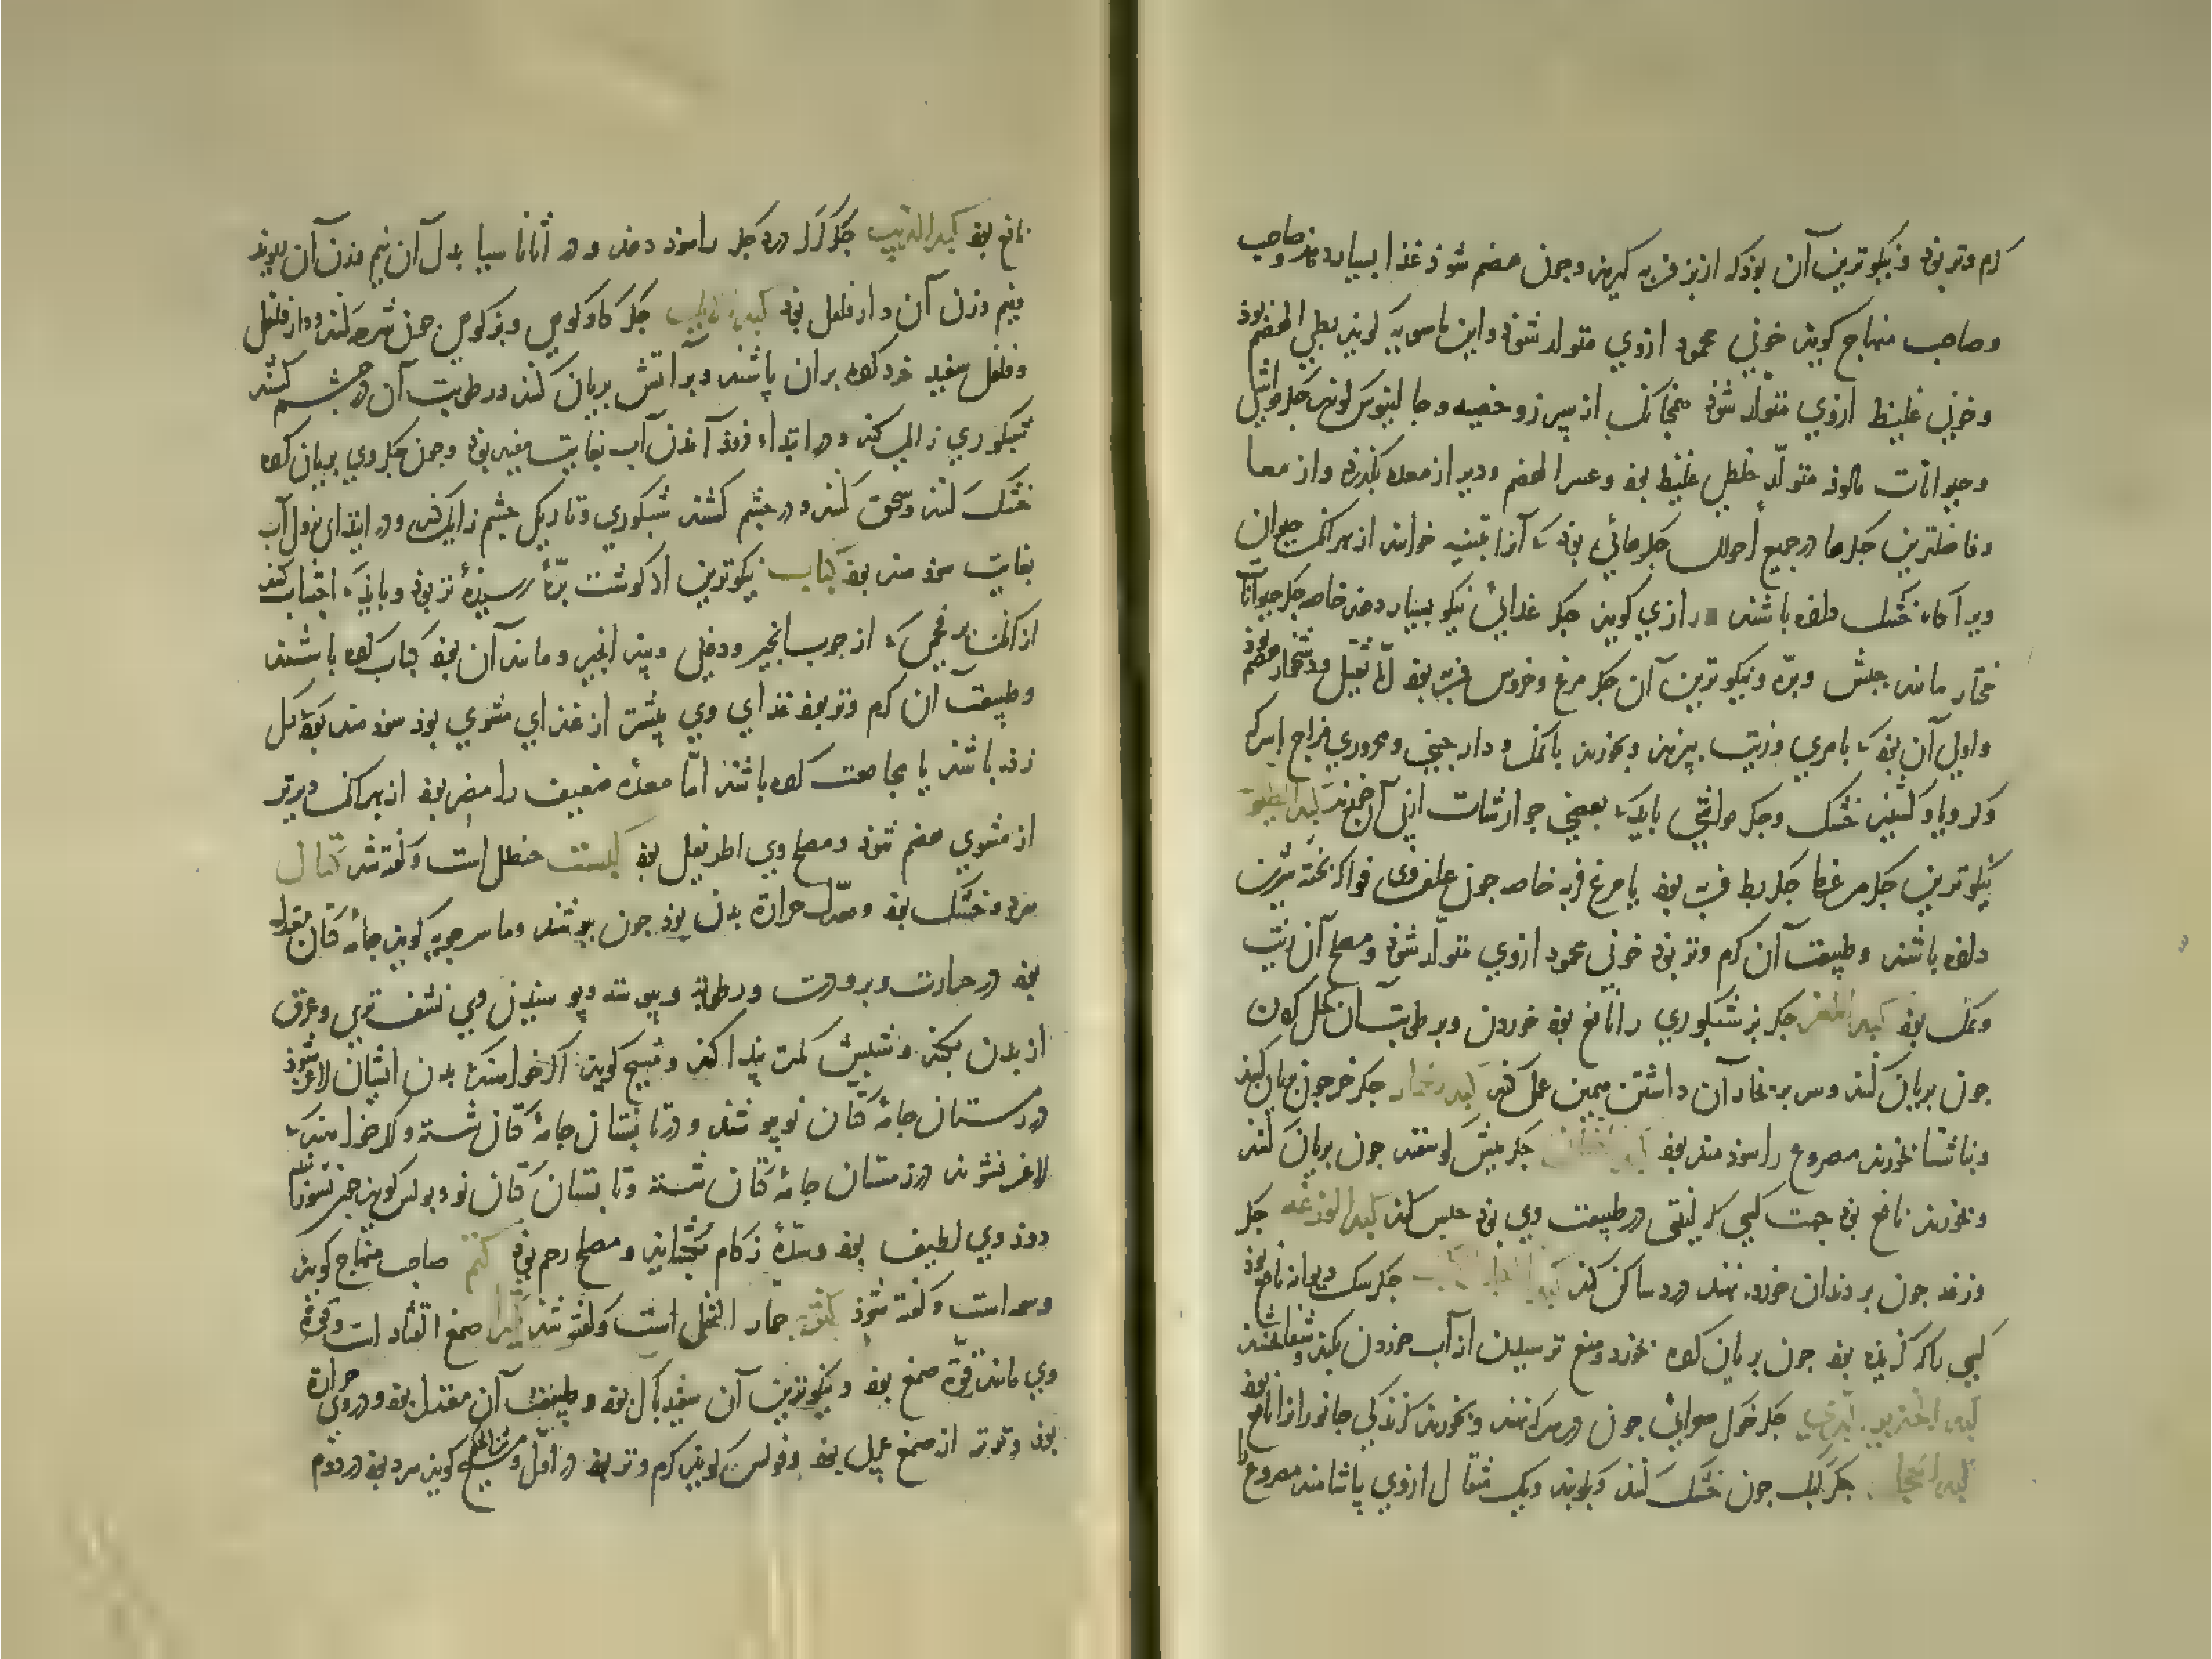 کرم وتر بود ونیکوترین آن بود که از بز فربه کیرند وجون هضم شود غذا بسیار دهد وصاحب
وصاحب منهاج کویند خونی محمود ازوی متولد شود وابن ماسویه کویند بطی الهضم بود
وخونی غلیظ ازوی متولد شود همجنانک از سپرز وخصیه وجالینوس کویند جکر مواشی
وحیوانات مالوفه متولد خلطی غلیظ بود وعسر الهضم ودیر از معده بکذرد واز معا
وفاضلترین جکرها در جمیع احوال جکرهائی بود که آنرا تینیه خوانند از بهر آنک حیوان
ویرا کاه خشک علف باشند رازی کویند جکر غذائی نیکو بسیار دهد خاصه جکر حیوانات
مختار مانند میش وبره ونیکوترین آن جکر مرغ وخروس فربه بود اما ثقیل ودشخوار هضم بود
واولی آن بود که با مری وزیت بپزند وبخورند با نمک ودارجینی ومحروری مزاج با سرکه
وکرویا وکشنیز خشک وجکر مواشی باید که بعضی جوارشات از پی آن خورند کبد الطیور
نیکوترین جکر مرغها جکر بط فربه بود یا مرغ فربه خاصه جون علف وی فواکه پخته شیرین
داده باشند وطبیعت آن کرم وتر بود خونی محمود ازوی متولد شود ومصلح آن زیت
ونمک بود کبد المعز جکر بز شبکوری را نافع بود خوردن وبرطوبت آن کحل کردن
جون بریان کنند وسر به بخار آن داشتن همین عمل کند کبد الحمار جکر خر جون بریان کنند
وناشتا بخورند مصروع را سودمند بود کبد جکر میش کوسفند جون بریان کنند
وبخورند نافع بود جهت کسی که در طبیعت وی بود حبس کند کبد الوزغه جکر
وزغه جون بر دندان خورده نهند درد ساکن کند کبد جکر سک دیوانه نافع بود
کسی را که کزیده بود جون بریان کرده بخورد ومنع ترسیدن از آب خوردن بکند وشفا بخشد
کبد الخنزیر جکر خوک صحرائی جون در سرکه نهند وبخورند کزندکی جانوران را نافع بود
کبد جکر کبک جون خشک کنند وبکوبند ویک مثقال ازوی بیاشامند مصروع را
نافع بود کبد الذیب جکر کرک درد جکر را سود دهد ودر اناناسیا بدل آن نیم وزن آن
ونیم وزن آن دارفلفل بود کبد جکر کاو کوهی وبز کوهی جون شرحه کنند ودارفلفل
وفلفل سفید خرد کرده بران پاشند وبر آتش بریان کنند ورطوبت آن در جشم کشند
شبکوری زایل کند ودر ابتداء فرود آمدن آب بغایت مفید بود وجون جکر وی بریان کرده
خشک کنند وسحق کنند ودر جشم کشند شبکوری وتاریکی جشم زایل کند ودر ابتدای نزول آب
بغایت سودمند بود کباب نیکوترین از کوشت بره رسیده تر بود وباید که اجتناب کنند
از آنک بر فحمی که از جوب انجیر ودفلی وبید انجیر ومانند آن بود کباب کرده باشند
وطبیعت آن کرم وتر بود غذای وی بیشتر از غذای مشوی بود سودمند بود کسی که
زده باشند یا مجامعت کرده باشند اما معده ضعیف را مضر بود از بهر آنک دیرتر
از مشوی هضم شود ومصلح وی اطریفل بود کبست حنظل است وکفته شد کتان
سرد وخشک بود ومعدل حرارة بدن بود جون بپوشند وماسرجویه کویند جامه کتان معتدل
بود در حرارت وبرودت ورطوبة ویبوست وپوشیدن وی نشف تری وعرق
از بدن بکند وشپش کمتر پیدا کند ومسیح کویند اکر خواهند که بدن ایشان لاغر شود
در زمستان جامه کتان نو پوشند ودر تابستان جامه کتان شسته واکر خواهند که
لاغر نشوند در زمستان جامه کتان شسته وتابستان کتان نو وبولس کویند
دود وی لطیف بود وسده زکام بکشاید ومصلح رحم بود کتم صاحب منهاج کویند
وسمه است وکفته شود جمار النخل است وکفته شد کثیرا صمغ القتاد است وقوه
وی مانند قوة صمغ بود ونیکوترین آن سفید پاک بود وطبیعت آن معتدل بود ودر وی حرارة
بود وترتر از صمغ عربی بود وفولس کویند کرم وتر بود در اول ومسیح کویند سرد بود در دوم